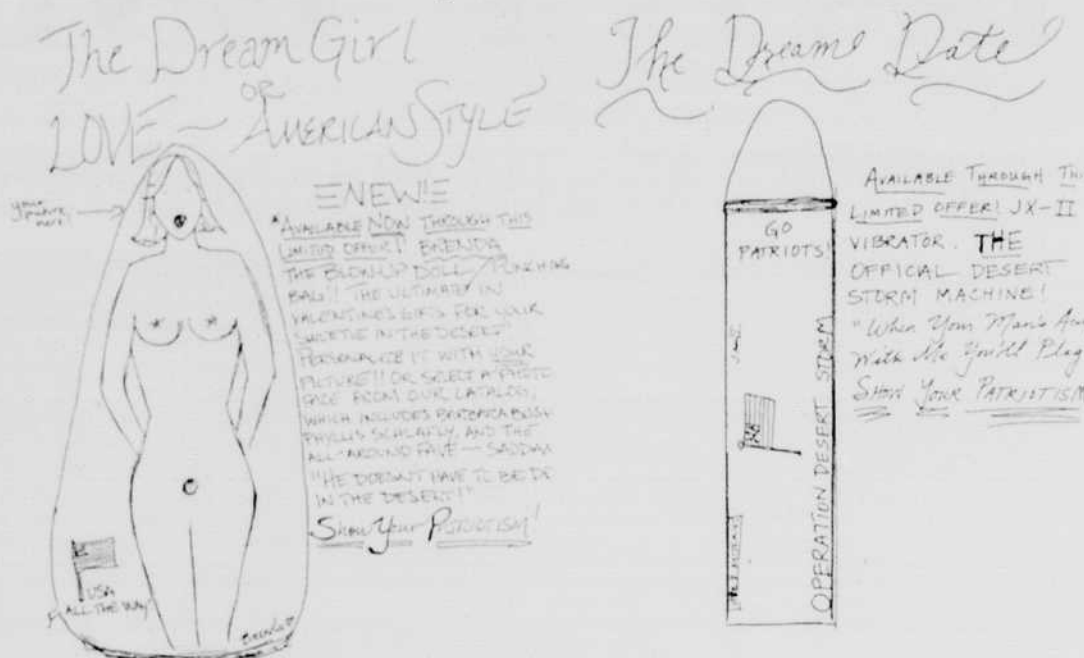 The Dream Girl
OR
LOVE ~ AMERICAN STYLE
your picture here!
NEW!
*AVAILABLE NOW THROUGH THIS
LIMITED OFFER! BRENDA
THE BLOW-UP DOLL/PUNCHING
BAG!! THE ULTIMATE IN
VALENTINES GIFTS FOR YOUR
SWEETIE IN THE DESERT!
PERSONALIZE IT WITH YOUR
PICTURE!! OR SELECT A PHOTO
FACE FROM OUR CATALOG,
WHICH INCLUDES BARBARA BUSH
PHYLLIS SCHLAFLY, AND THE
ALL-AROUND FAVE — SADDAM
"HE DOESN'T HAVE TO BE
IN THE DESERT!"
Show Your PATRIOTISM!
USA
ALL THE WAY
BRENDA
The Dream Date
GO
PATRIOTS!
OPERATION DESERT STORM
AVAILABLE THROUGH
LIMITED OFFER! JX-II
VIBRATOR. THE
OFFICIAL DESERT
STORM MACHINE!
"When Your Man's
With Me You'll
SHOW YOUR PATRIOTISM